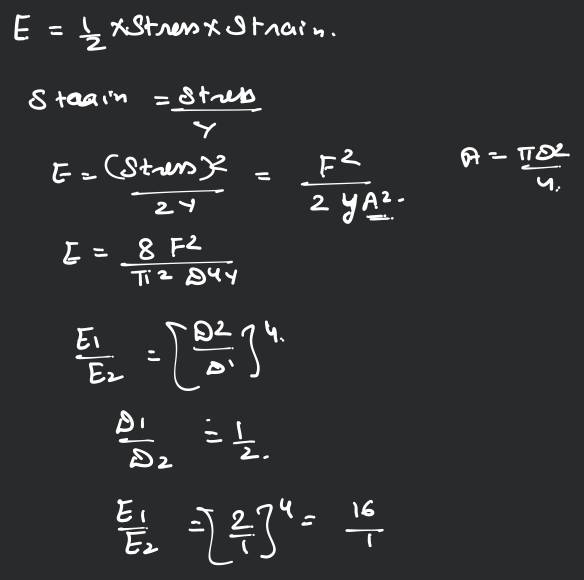 E = 1/2 × Stress × Strain.
Strain = Stress/Y
E = (Stress)²/2Y = F²/2YA². A = πD²/4.
E = 8F²/π²D⁴Y
E1/E2 = [D2/D1]⁴.
D1/D2 = 1/2.
E1/E2 = [2/1]⁴ = 16/1